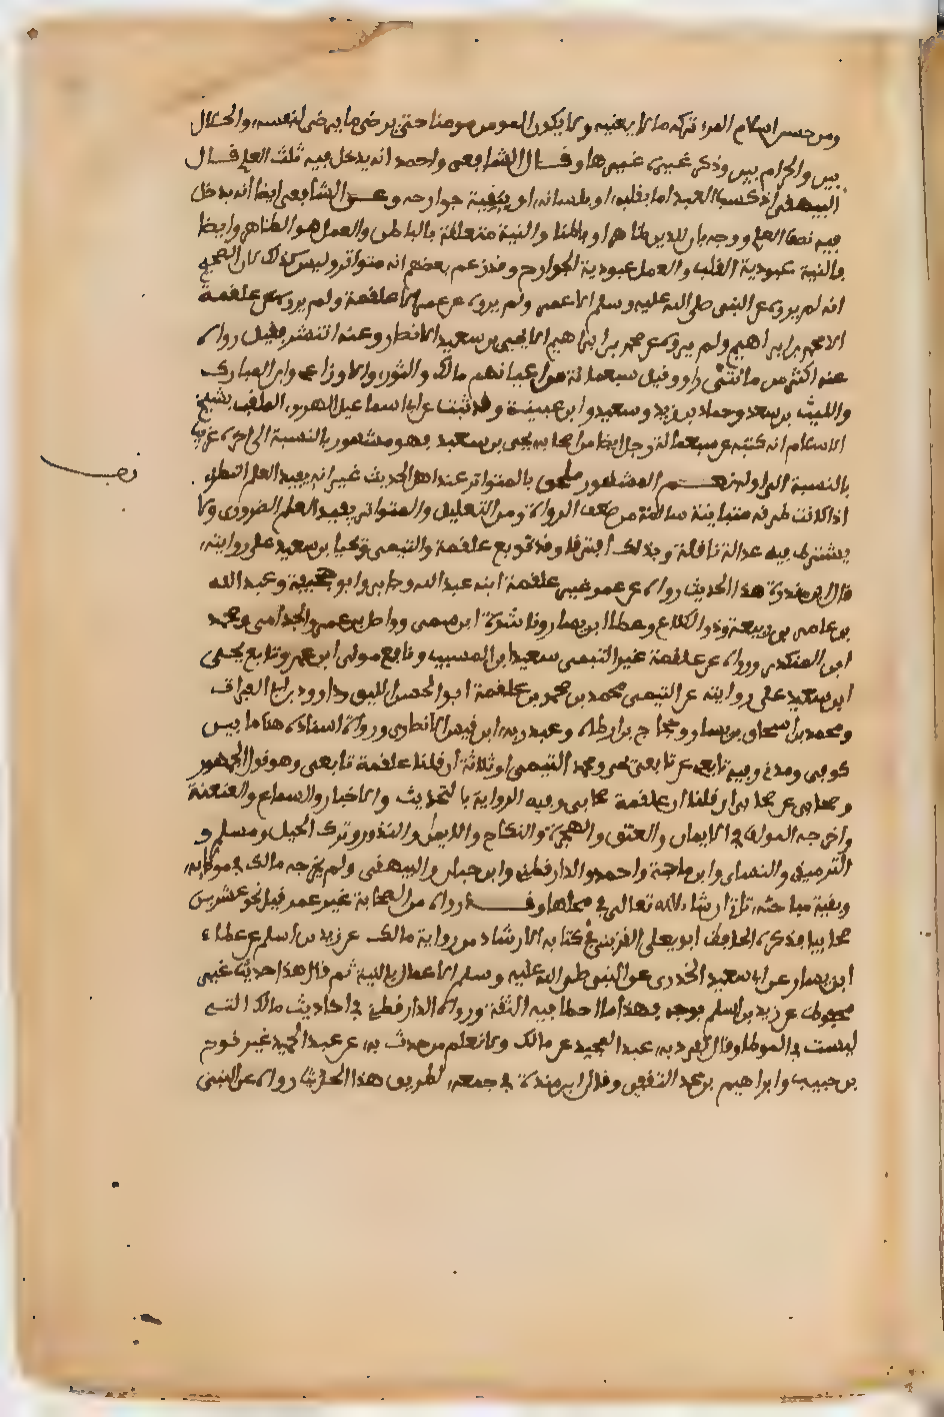 ومن حسن اسلام المرء تركه ما لا يعنيه ولا يكون المومن مومنا حتى يرضى ما يرضى لنفسه والحلال
بين والحرام بين وذكر غيره غيرها وقال الشافعي واحمد انه يدخل فيه ثلث العلم قال
البيهقي اذ كسب العبد اما بقلبه او بلسانه او ببقية جوارحه وعن الشافعي ايضا انه يدخل
فيه نصف العلم ووجه بان للدين ظاهرا وباطنا والنية متعلقة بالباطن والعمل هو الظاهر وايضا
فالنية عبودية القلب والعمل عبودية الجوارح وقد زعم بعضهم انه متواتر وليس كذلك لان الصحيح
انه لم يروه عن النبي صلى الله عليه وسلم الا عمر ولم يروه عن عمر الا علقمة ولم يروه عن علقمة
الا محمد بن ابراهيم ولم يروه عن محمد بن ابراهيم الا يحيى بن سعيد الانصار وعنه انتشر فقيل رواه
عنه اكثر من مائتي راو وقيل سبعمائة من اعيانهم مالك والثوري والاوزاعي وابن المبارك
والليث بن سعد وحماد بن زيد وسعيد وابن عيينة وقد ثبت عن ابي اسماعيل الهروي الملقب بشيخ
الاسلام انه كتبه عن سبعمائة رجل ايضا من اصحاب يحيى بن سعيد فهو مشهور بالنسبة الى اخره غريب
بالنسبة الى اوله نعم المشهور ملحق بالمتواتر عند اهل الحديث غير انه يفيد العلم النظري
اذا كانت طرقه متباينة سالمة من ضعف الرواة ومن التعليل والمتواتر يفيد العلم الضروري ولا
يشترط فيه عدالة ناقله وبذلك افترقا وقد توبع علقمة والتيمي ويحيا بن سعيد على روايته
قال ابن مندة هذا الحديث رواه عن عمر غير علقمة ابنه عبد الله وجابر وابو جحيفة وعبد الله
بن عامر بن ربيعة وذو الكلاع وعطا ابن يسار وناشرة ابن سمي وواصل بن عمرو الجذامي ومحمد
ابن المنكدر ورواه عن علقمة غير التيمي سعيد ابن المسيب ونافع مولى ابن عمر وتابع يحيى
ابن سعيد على روايته عن التيمي محمد بن محمد بن علقمة ابو الحسن الليثي وداوود بن ابي الفرات
ومحمد بن اسحاق بن يسار وحجاج بن ارطاه وعبد ربه ابن قيس الانصاري ورواه اسناده هنا ما بين
كوفي ومدني وفيه تابعي عن تابعي يحيى ومحمد التيمي او ثلاثة ان قلنا علقمة تابعي وهو قول الجمهور
وصحابي عن صحابي ان قلنا ان علقمة صحابي وفيه الرواية بالتحديث والاخبار والسماع والعنعنة
واخرجه المولف في الايمان والعتق والهجرة والنكاح والايمان والنذور وترك الحيل ومسلم و
الترمذي والنساي وابن ماجة واحمد والدارقطني وابن حبان والبيهقي ولم يخرجه مالك في موطايه
وبقية مباحثه تاتي ان شاء الله تعالى في محلها وقد رواه من الصحابة غير عمر قيل نحو عشرين
صحابيا فذكره الحافظ ابو يعلى القزيني في كتابه الارشاد من رواية مالك عن زيد بن اسلم عن عطاء
ابن يسار عن ابي سعيد الخدري عن النبي صلى الله عليه وسلم الاعمال بالنية ثم قال هذا حديث غير
محفوظ عن زيد بن اسلم بوجه فهذا ما اخطا فيه الثقة ورواه الدارقطني في احاديث مالك التي
ليست في الموطا وقال تفرد به عبد المجيد عن مالك ولا نعلم من حدث به عن عبد المجيد غير نوح
بن حبيب وابراهيم بن محمد العتقي وقال ابن مندة في جمعه لطريق هذا الحديث رواه عن النبي